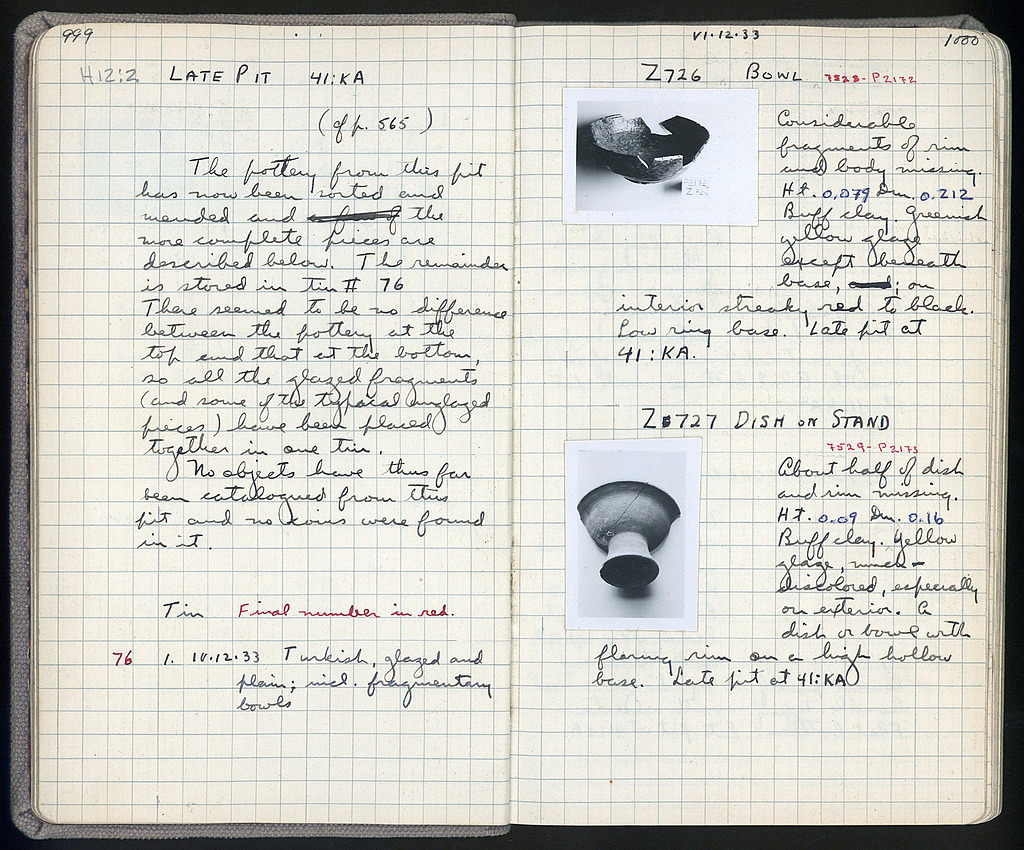 999
H12:2 LATE PIT 41:KA
(cf p. 565)
The pottery from this pit
has now been sorted and
mended and the
more complete pieces are
described below. The remainder
is stored in tin # 76
There seemed to be no difference
between the pottery at the
top and that at the bottom,
so all the glazed fragments
(and some of the typical unglazed
pieces) have been placed
together in one tin.
No objects have thus far
been catalogued from this
pit and no coins were found
in it.
Tin Final number in red.
76 1. 10.12.33 Turkish, glazed and
plain; incl. fragmentary
bowls
VI.12.33
1000
Z726 BOWL 7528-P2172
P2172
Z726
Considerable
fragments of rim
and body missing.
Ht. 0.079 Dm. 0.212
Buff clay. Greenish
yellow glaze
except beneath
base, ; on
interior streaky red to black.
Low ring base. Late pit at
41:KA.
Z727 DISH ON STAND
7529-P2173
About half of dish
and rim missing.
Ht. 0.09 Dm. 0.16
Buff clay. Yellow
glaze, much
discolored, especially
on exterior. A
dish or bowl with
flaring rim on a high hollow
base. Late pit at 41:KA